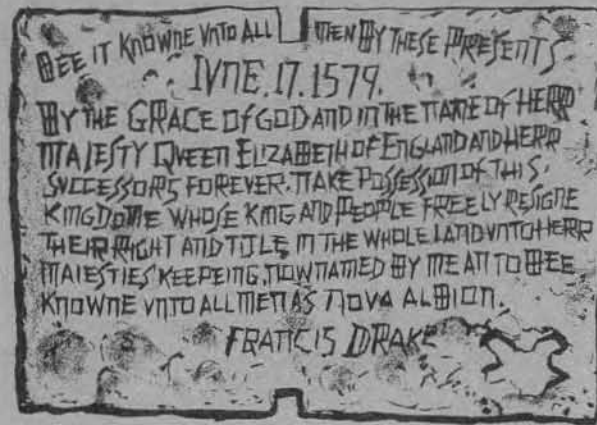 BEE IT KNOWNE VNTO ALL MEN BY THESE PRESENTS
IVNE.17.1579.
BY THE GRACE OF GOD AND IN THE NAME OF HERR
MAIESTY QVEEN ELIZABETH OF ENGLAND AND HERR
SVCCESSORS FOREVER. I TAKE POSSESSION OF THIS.
KINGDOME WHOSE KING AND PEOPLE FREELY RESIGNE
THEIR RIGHT AND TITLE IN THE WHOLE LAND VNTO HERR
MAIESTIES KEEPEING. NOW NAMED BY ME AN TO BEE
KNOWNE VNTO ALL MEN AS NOVA ALBION.
FRANCIS DRAKE